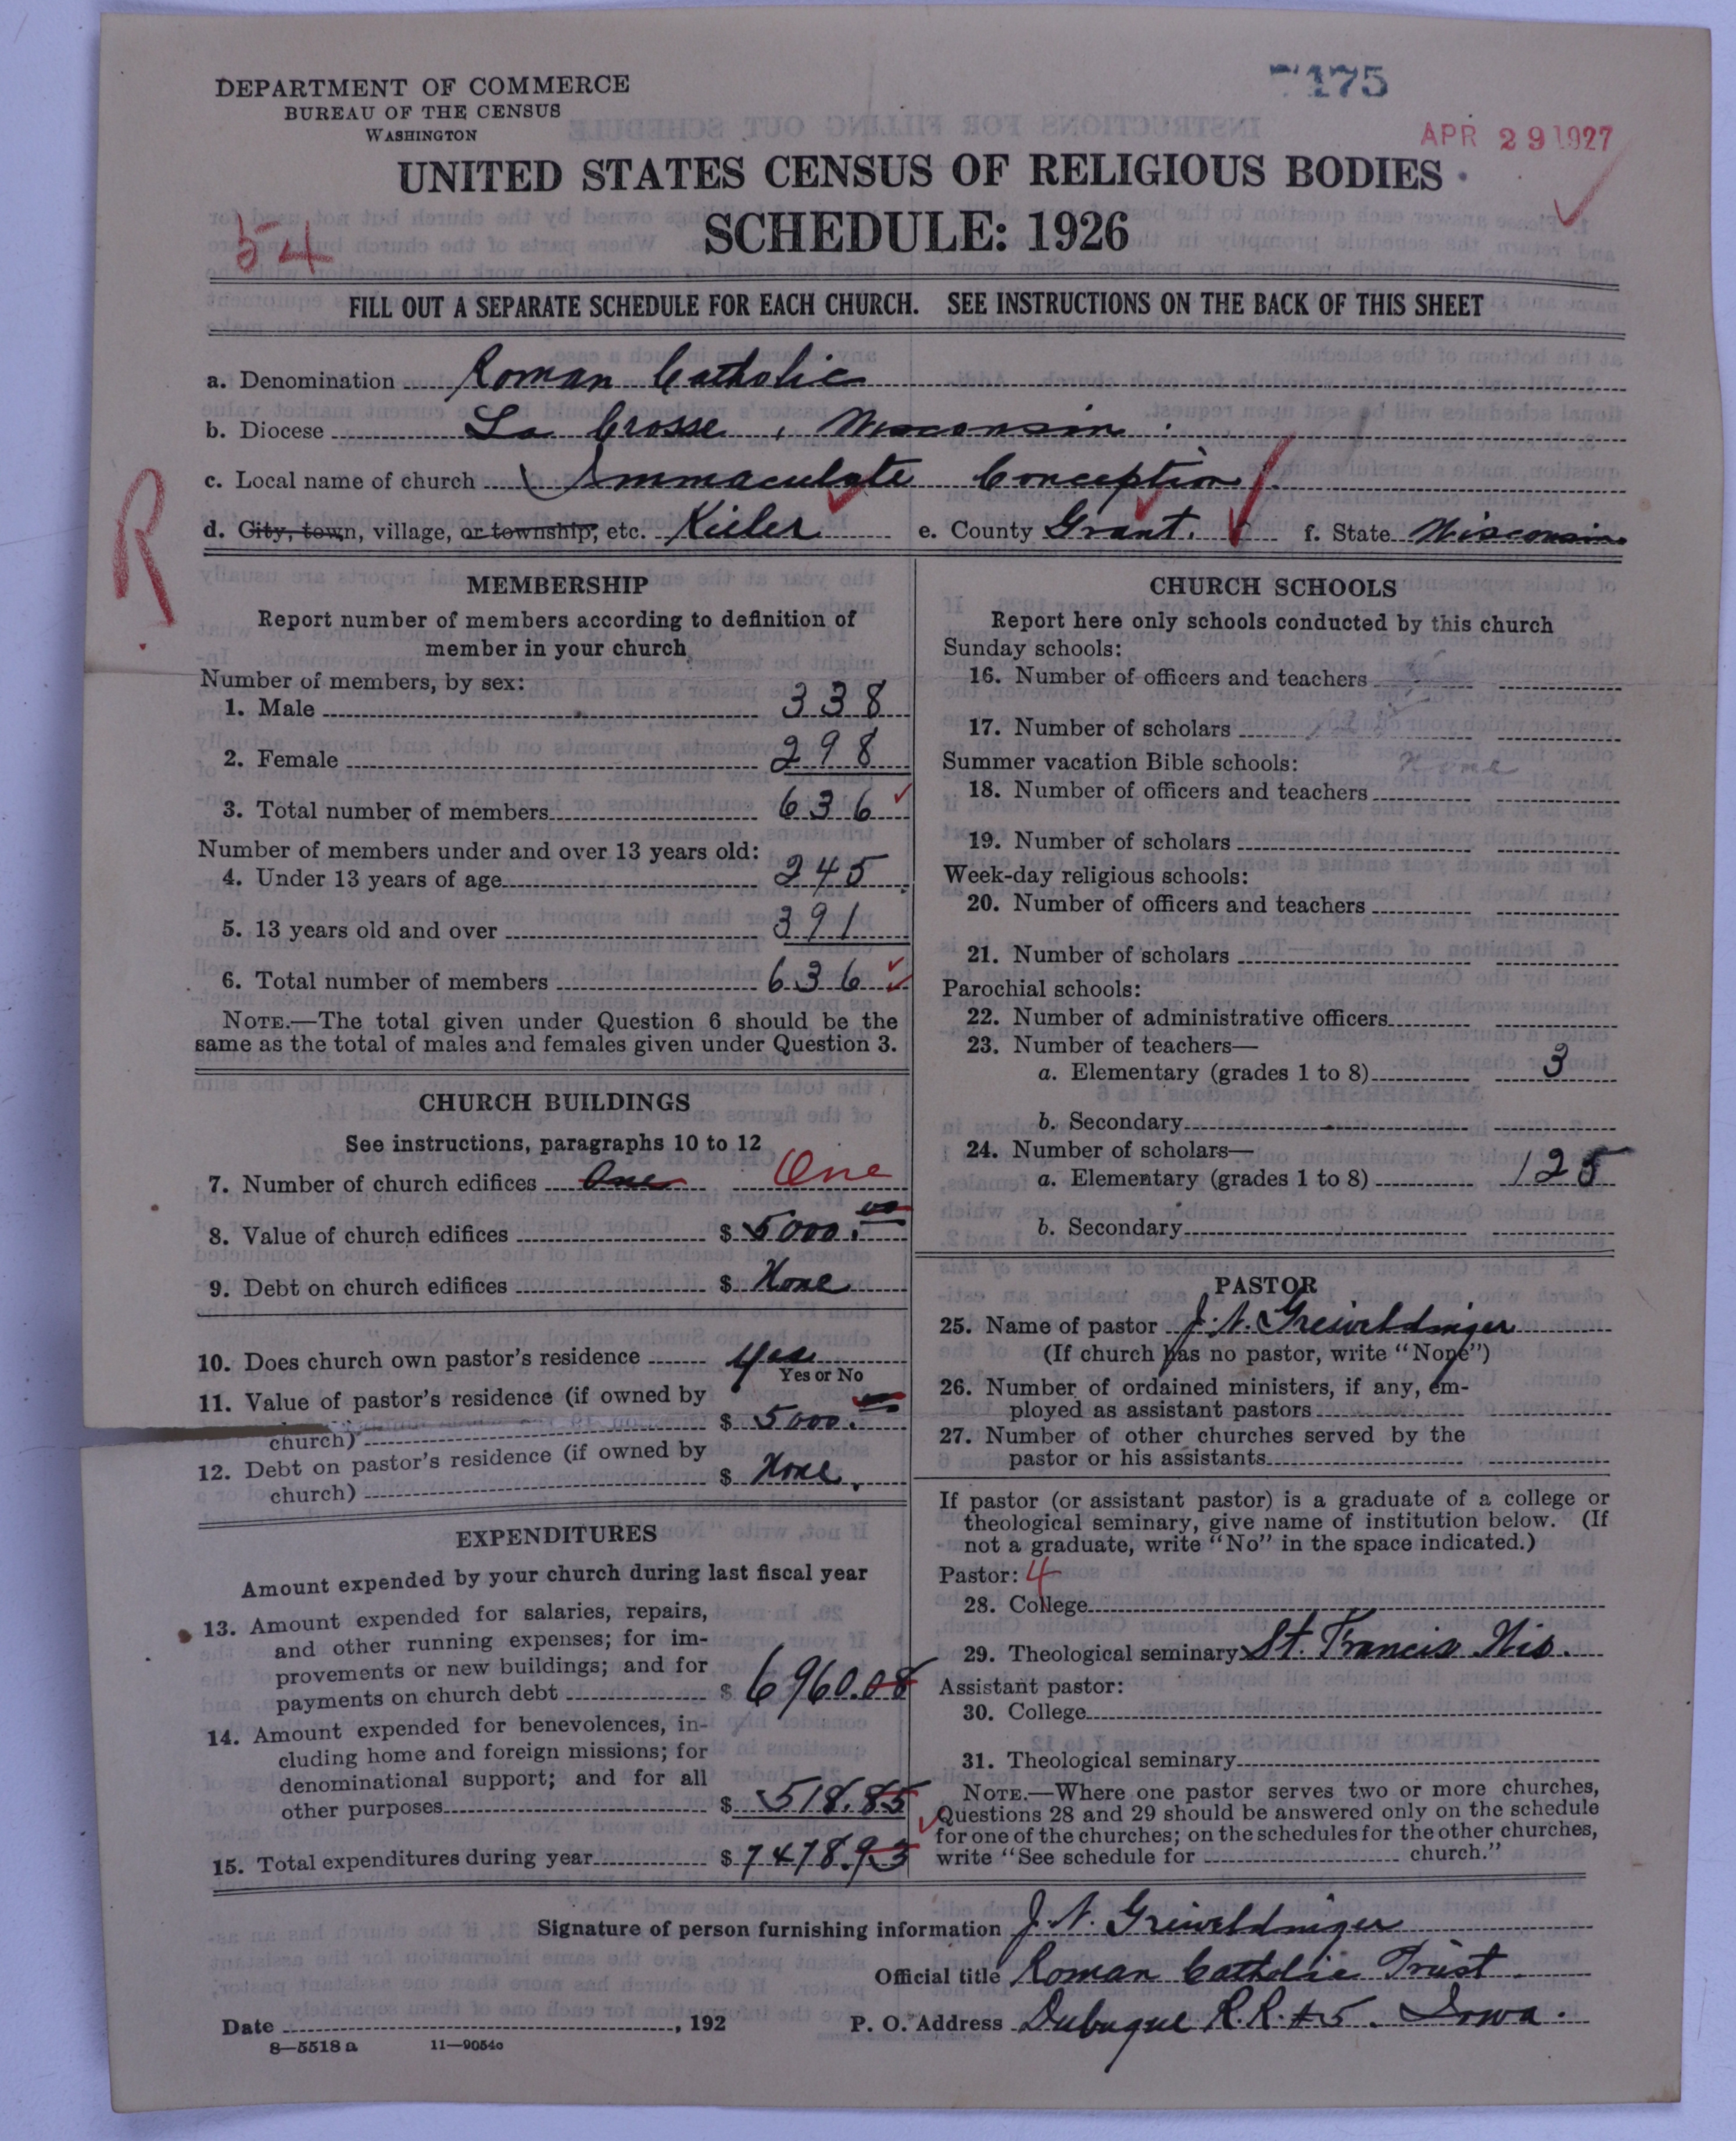 7175
APR 29 1927
DEPARTMENT OF COMMERCE
BUREAU OF THE CENSUS
WASHINGTON
UNITED STATES CENSUS OF RELIGIOUS BODIES
SCHEDULE: 1926
54
FILL OUT A SEPARATE SCHEDULE FOR EACH CHURCH. SEE INSTRUCTIONS ON THE BACK OF THIS SHEET
a. Denomination Roman Catholic
b. Diocese La Crosse, Wisconsin.
c. Local name of church Immaculate Conception
d. City, town, village, or township, etc. Kieler e. County Grant. f. State Wisconsin.
R.
MEMBERSHIP
Report number of members according to definition of
member in your church
Number of members, by sex:
1. Male 338
2. Female 298
3. Total number of members 636
Number of members under and over 13 years old:
4. Under 13 years of age 245
5. 13 years old and over 391
6. Total number of members 636
NOTE.—The total given under Question 6 should be the
same as the total of males and females given under Question 3.
CHURCH BUILDINGS
See instructions, paragraphs 10 to 12
7. Number of church edifices One One
8. Value of church edifices $ 5000.00
9. Debt on church edifices $ None
10. Does church own pastor's residence Yes
Yes or No
11. Value of pastor's residence (if owned by
church) $ 5000.00
12. Debt on pastor's residence (if owned by
church) $ None.
EXPENDITURES
Amount expended by your church during last fiscal year
13. Amount expended for salaries, repairs,
and other running expenses; for im-
provements or new buildings; and for
payments on church debt $ 6960.08
14. Amount expended for benevolences, in-
cluding home and foreign missions; for
denominational support; and for all
other purposes $ 518.85
15. Total expenditures during year $ 7478.93
CHURCH SCHOOLS
Report here only schools conducted by this church
Sunday schools:
16. Number of officers and teachers
17. Number of scholars
Summer vacation Bible schools: none
18. Number of officers and teachers
19. Number of scholars
Week-day religious schools:
20. Number of officers and teachers
21. Number of scholars
Parochial schools:
22. Number of administrative officers
23. Number of teachers—
a. Elementary (grades 1 to 8) 3
b. Secondary
24. Number of scholars—
a. Elementary (grades 1 to 8) 125
b. Secondary
PASTOR
25. Name of pastor J. N.
(If church has no pastor, write "None")
26. Number of ordained ministers, if any, em-
ployed as assistant pastors
27. Number of other churches served by the
pastor or his assistants
If pastor (or assistant pastor) is a graduate of a college or
theological seminary, give name of institution below. (If
not a graduate, write "No" in the space indicated.)
Pastor: 4
28. College
29. Theological seminary St. Francis Wis.
Assistant pastor:
30. College
31. Theological seminary
NOTE.—Where one pastor serves two or more churches,
Questions 28 and 29 should be answered only on the schedule
for one of the churches; on the schedules for the other churches,
write "See schedule for church."
Signature of person furnishing information J. N.
Official title Roman Catholic Priest
Date , 192 P. O. Address Dubuque R.R. #5. Iowa.
8—5518 a 11—9054c